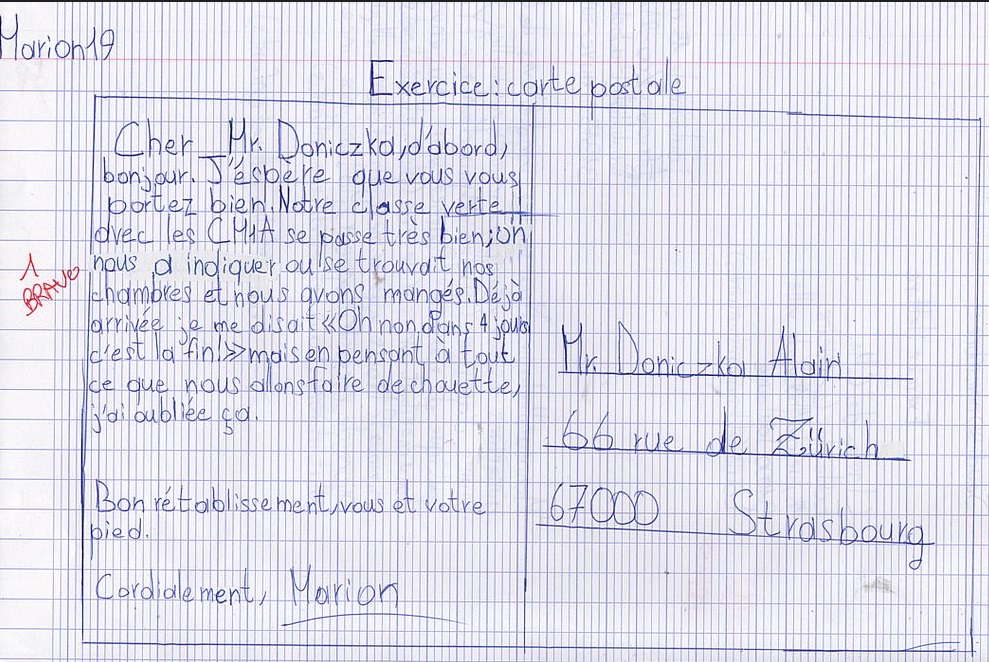 Marion19
Exercice: carte postale
Cher Mr. Doniczka, d'abord,
bonjour. J'éspère que vous vous
portez bien. Notre classe verte
avec les CM1A se passe très bien; on
nous a indiquer ou se trouvait nos
chambres et nous avons mangés. Déjà
arrivée je me disait «Oh non, dans 4 jours
c'est la fin!» mais en pensant à tout
ce que nous allons faire de chouette,
j'ai oubliée ça.
Bon rétablissement, vous et votre
pied.
Cordialement, Marion
1
BRAVO
Mr. Doniczka Alain
66 rue de Zürich
67000 Strasbourg